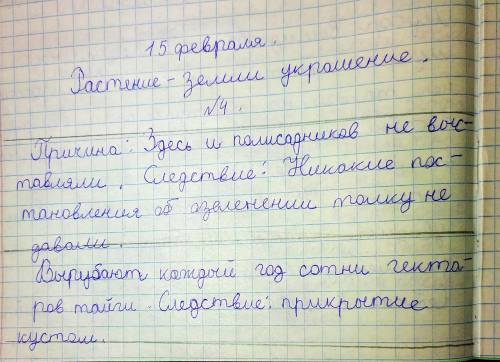 15 февраля.
Растение - земли украшение.
№4.
Причина: Здесь и полисадников не выс-
тавляли. Следствие: Никакие пос-
тановления об озеленении толку не
давали.
Вырубают каждый год сотни гекта-
ров тайги. Следствие: прикрытие
кустом.